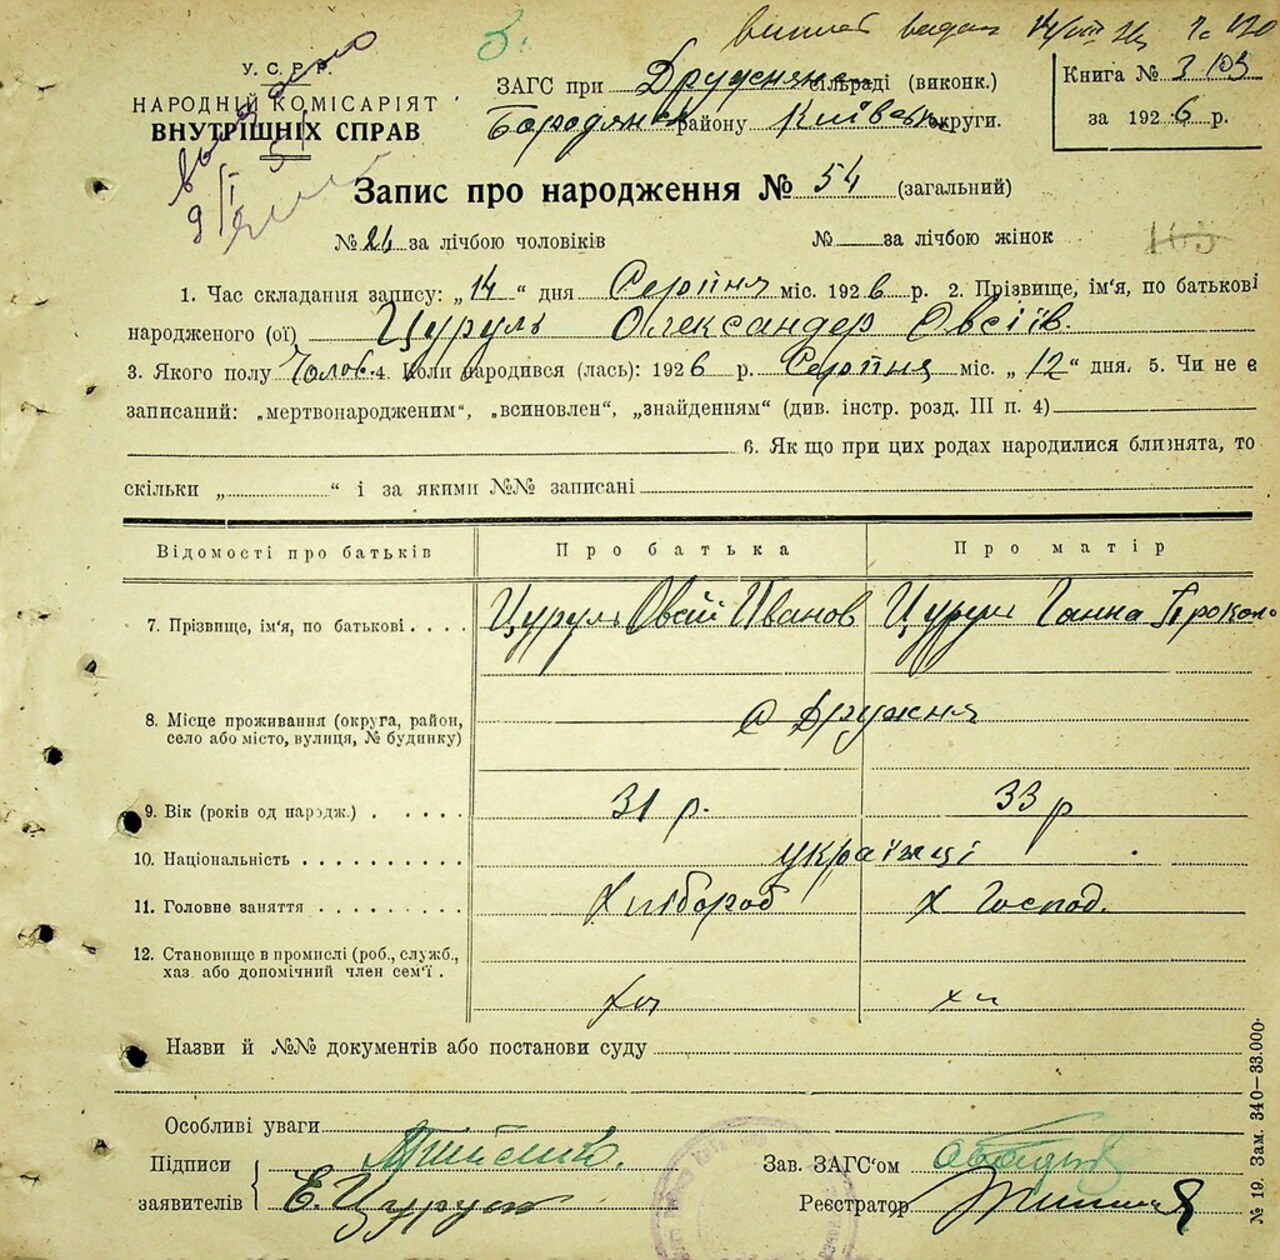 У. С. Р. Р.
НАРОДНІЙ КОМІСАРІЯТ
ВНУТРІШНІХ СПРАВ
ЗАГС при Дружнянс. сільраді (виконк.)
Бородянск району Київськ округи.
Книга № 3 103
за 1926 р.
Запис про народження № 54 (загальний)
№ 24 за лічбою чоловіків № за лічбою жінок
1. Час складання запису: „14“ дня Серпня міс. 1926 р. 2. Прізвище, ім'я, по батькові
народженого (ої) Цуруль Олександер Овсіїв.
3. Якого полу Чолов. 4. Коли народився (лась): 1926 р. Серпня міс. „12“ дня. 5. Чи не є
записаний: „мертвонародженим“, „всиновлен“, „знайденням“ (див. інстр. розд. III п. 4)
6. Як що при цих родах народилися близнята, то
скільки „ “ і за якими №№ записані
Відомості про батьків Про батька Про матір
7. Прізвище, ім'я, по батькові . . . . Цуруль Овсій Иванов Цурул Ганна Прокоп
8. Місце проживання (округа, район,
село або місто, вулиця, № будинку)
с Дружня
9. Вік (років од народж.) . . . . . 31 р. 33 р
10. Національність . . . . . . . . . . українці
11. Головне заняття . . . . . . . . . Хлібороб Х Господ.
12. Становище в промислі (роб., служб.,
хаз. або допомічний член сем'ї .
Назви й №№ документів або постанови суду
Особливі уваги
Підписи
заявителів
Е. Цуруль
Зав. ЗАГС'ом
Реєстратор
№ 19. Зам. 340—33.000.